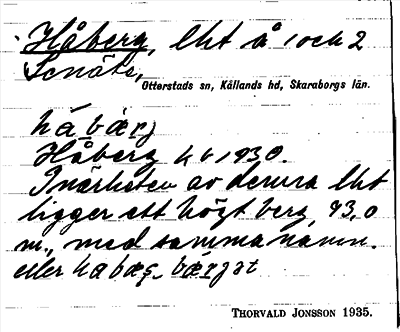 Håberg, lht å 1 och 2
Senäte,
Otterstads sn, Kållands hd, Skaraborgs län.
hábærj
Håberg kv 1930.
I närheten av denna lht
ligger ett högt berg, 93,0
m., med samma namn.
eller
THORVALD JONSSON 1935.